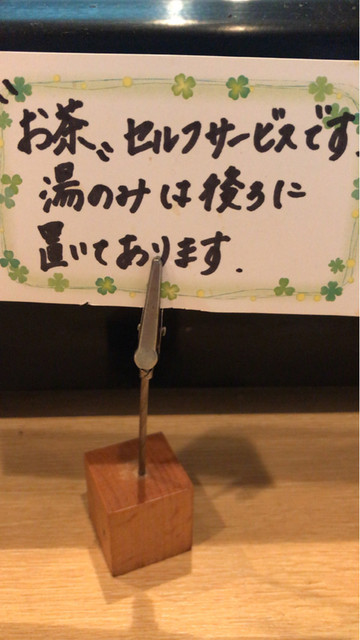 〝お茶〟セルフサービスです。
湯のみは後ろに
置いてあります.